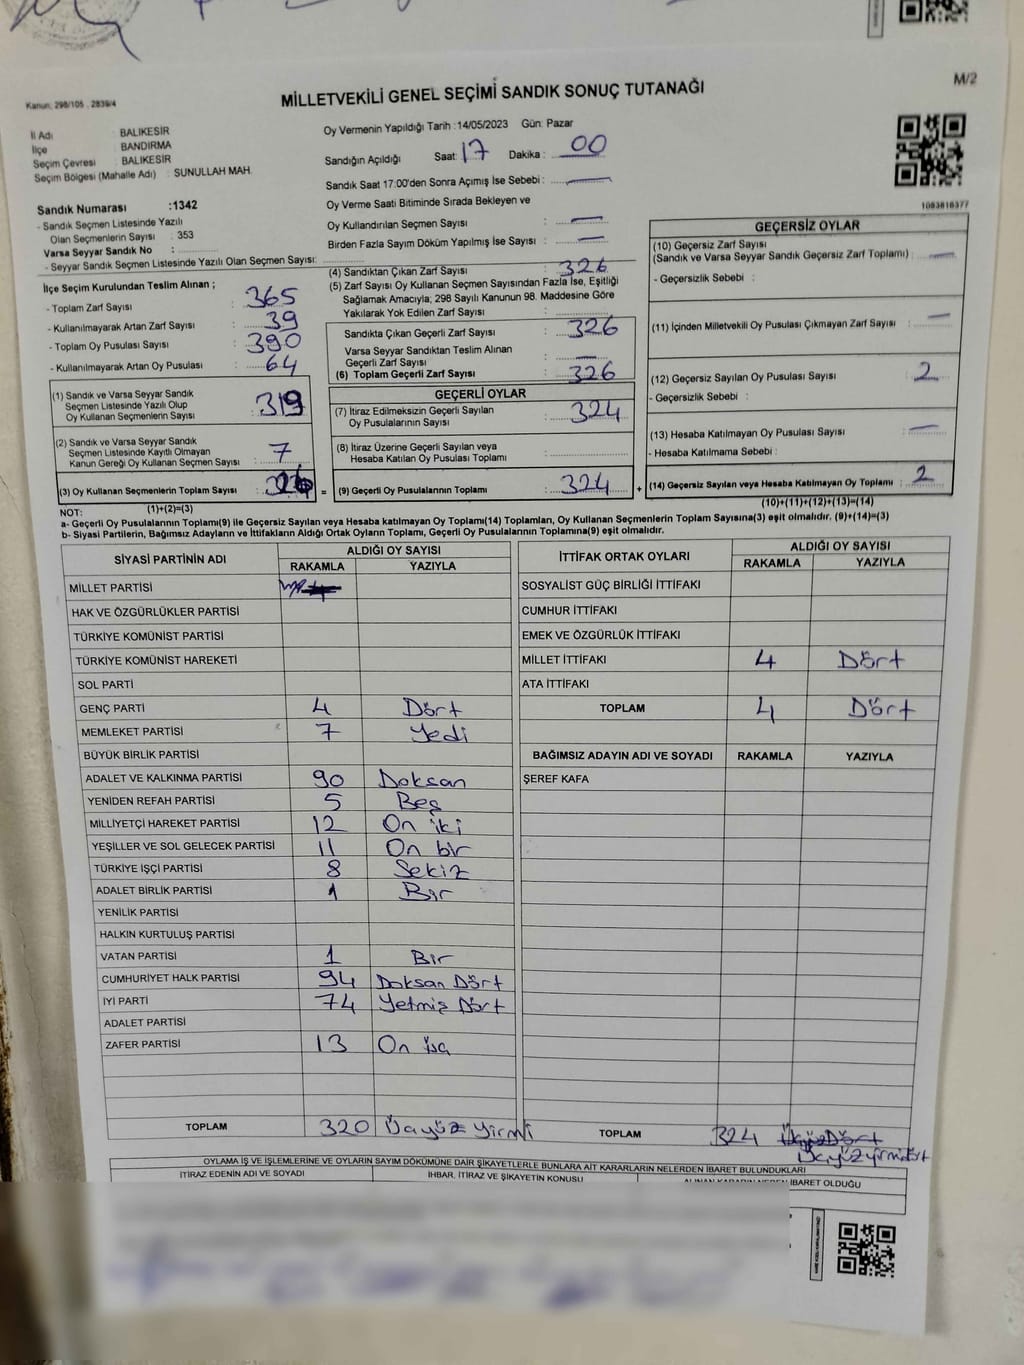 M/2
Kanun: 298/105 . 2839/4
MİLLETVEKİLİ GENEL SEÇİMİ SANDIK SONUÇ TUTANAĞI
İl Adı : BALIKESİR
İlçe : BANDIRMA
Seçim Çevresi : BALIKESİR
Seçim Bölgesi (Mahalle Adı) : SUNULLAH MAH.
Oy Vermenin Yapıldığı Tarih : 14/05/2023 Gün: Pazar
Sandığın Açıldığı Saat: 17 Dakika : 00
Sandık Saat 17:00'den Sonra Açımış İse Sebebi : —
Oy Verme Saati Bitiminde Sırada Bekleyen ve
Oy Kullandırılan Seçmen Sayısı : —
Birden Fazla Sayım Döküm Yapılmış İse Sayısı : —
1083818377
Sandık Numarası :1342
- Sandık Seçmen Listesinde Yazılı
Olan Seçmenlerin Sayısı : 353
Varsa Seyyar Sandık No :
- Seyyar Sandık Seçmen Listesinde Yazılı Olan Seçmen Sayısı:
İlçe Seçim Kurulundan Teslim Alınan ;
- Toplam Zarf Sayısı : 365
- Kullanılmayarak Artan Zarf Sayısı : 39
- Toplam Oy Pusulası Sayısı : 390
- Kullanılmayarak Artan Oy Pusulası : 64
(1) Sandık ve Varsa Seyyar Sandık
Seçmen Listesinde Yazılı Olup
Oy Kullanan Seçmenlerin Sayısı : 319
(2) Sandık ve Varsa Seyyar Sandık
Seçmen Listesinde Kayıtlı Olmayan
Kanun Gereği Oy Kullanan Seçmen Sayısı : 7
(3) Oy Kullanan Seçmenlerin Toplam Sayısı : 326 =
(4) Sandıktan Çıkan Zarf Sayısı : 326
(5) Zarf Sayısı Oy Kullanan Seçmen Sayısından Fazla İse, Eşitliği
Sağlamak Amacıyla; 298 Sayılı Kanunun 98. Maddesine Göre
Yakılarak Yok Edilen Zarf Sayısı :
Sandıkta Çıkan Geçerli Zarf Sayısı : 326
Varsa Seyyar Sandıktan Teslim Alınan
Geçerli Zarf Sayısı : —
(6) Toplam Geçerli Zarf Sayısı : 326
GEÇERLİ OYLAR
(7) İtiraz Edilmeksizin Geçerli Sayılan
Oy Pusulalarının Sayısı : 324
(8) İtiraz Üzerine Geçerli Sayılan veya
Hesaba Katılan Oy Pusulası Toplamı :
(9) Geçerli Oy Pusulalarının Toplamı : 324 +
GEÇERSİZ OYLAR
(10) Geçersiz Zarf Sayısı
(Sandık ve Varsa Seyyar Sandık Geçersiz Zarf Toplamı) : —
- Geçersizlik Sebebi :
(11) İçinden Milletvekili Oy Pusulası Çıkmayan Zarf Sayısı : —
(12) Geçersiz Sayılan Oy Pusulası Sayısı : 2
- Geçersizlik Sebebi :
(13) Hesaba Katılmayan Oy Pusulası Sayısı : —
- Hesaba Katılmama Sebebi :
(14) Geçersiz Sayılan veya Hesaba Katılmayan Oy Toplamı : 2
NOT: (1)+(2)=(3) (10)+(11)+(12)+(13)=(14)
a- Geçerli Oy Pusulalarının Toplamı(9) ile Geçersiz Sayılan veya Hesaba katılmayan Oy Toplamı(14) Toplamları, Oy Kullanan Seçmenlerin Toplam Sayısına(3) eşit olmalıdır. (9)+(14)=(3)
b- Siyasi Partilerin, Bağımsız Adayların ve İttifakların Aldığı Ortak Oyların Toplamı, Geçerli Oy Pusulalarının Toplamına(9) eşit olmalıdır.
SİYASİ PARTİNİN ADI ALDIĞI OY SAYISI
RAKAMLA YAZIYLA
MİLLET PARTİSİ
HAK VE ÖZGÜRLÜKLER PARTİSİ
TÜRKİYE KOMÜNİST PARTİSİ
TÜRKİYE KOMÜNİST HAREKETİ
SOL PARTİ
GENÇ PARTİ 4 Dört
MEMLEKET PARTİSİ 7 Yedi
BÜYÜK BİRLİK PARTİSİ
ADALET VE KALKINMA PARTİSİ 90 Doksan
YENİDEN REFAH PARTİSİ 5 Beş
MİLLİYETÇİ HAREKET PARTİSİ 12 On iki
YEŞİLLER VE SOL GELECEK PARTİSİ 11 On bir
TÜRKİYE İŞÇİ PARTİSİ 8 Sekiz
ADALET BİRLİK PARTİSİ 1 Bir
YENİLİK PARTİSİ
HALKIN KURTULUŞ PARTİSİ
VATAN PARTİSİ 1 Bir
CUMHURİYET HALK PARTİSİ 94 Doksan Dört
İYİ PARTİ 74 Yetmiş Dört
ADALET PARTİSİ
ZAFER PARTİSİ 13 On üç
TOPLAM 320 Üçyüz Yirmi
İTTİFAK ORTAK OYLARI ALDIĞI OY SAYISI
RAKAMLA YAZIYLA
SOSYALİST GÜÇ BİRLİĞİ İTTİFAKI
CUMHUR İTTİFAKI
EMEK VE ÖZGÜRLÜK İTTİFAKI
MİLLET İTTİFAKI 4 Dört
ATA İTTİFAKI
TOPLAM 4 Dört
BAĞIMSIZ ADAYIN ADI VE SOYADI RAKAMLA YAZIYLA
ŞEREF KAFA
TOPLAM 324 ÜçyüzDört
Üçyüzyirmidört
OYLAMA İŞ VE İŞLEMLERİNE VE OYLARIN SAYIM DÖKÜMÜNE DAİR ŞİKAYETLERLE BUNLARA AİT KARARLARIN NELERDEN İBARET BULUNDUKLARI
İTİRAZ EDENİN ADI VE SOYADI İHBAR, İTİRAZ VE ŞİKAYETİN KONUSU ALINAN KARARIN NEDEN İBARET OLDUĞU